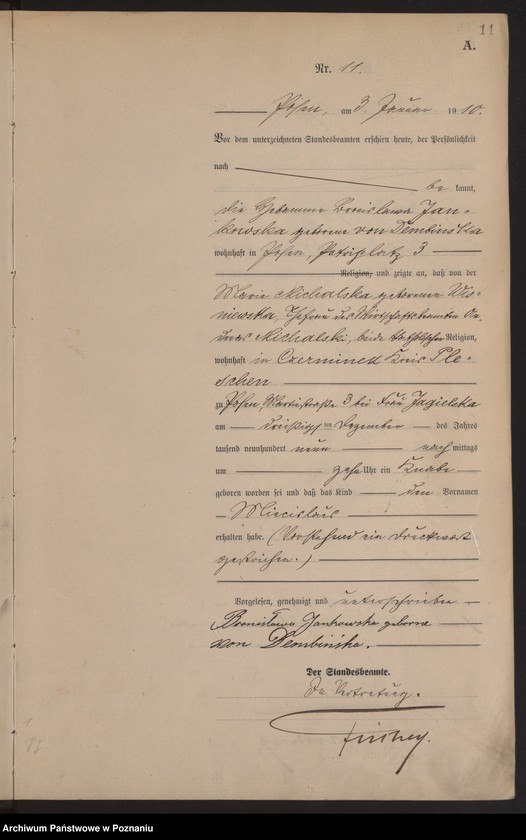 11
A.
Nr. 11.
Posen, am 3. Januar 1910.
Vor dem unterzeichneten Standesbeamten erschien heute, der Persönlichkeit
nach
be kannt,
die Hebamme Bronislawa Jan-
kowska geborene von Dembinska
wohnhaft in Posen, Petriplatz 3
Religion, und zeigte an, daß von der
Marie Michalska geborenen Wis-
niewska, Ehefrau des Wirtschaftsbeamten An-
dreas Michalski, beide katholischer Religion,
wohnhaft in Czerminek Kreis Ple-
schen
zu Posen, 3 bei Frau Jagielska
am dreißigsten Dezember des Jahres
tausend neunhundert neun nach mittags
um zehn Uhr ein Knabe
geboren worden sei und daß das Kind den Vornamen
Miecislaus
erhalten habe. (Vorstehend ein Druckwort
gestrichen.)
Vorgelesen, genehmigt und unterschrieben
Bronisława Jankowska geborne
von Dembińska.
Der Standesbeamte.
In Vertretung.
11
Archiwum Państwowe w Poznaniu